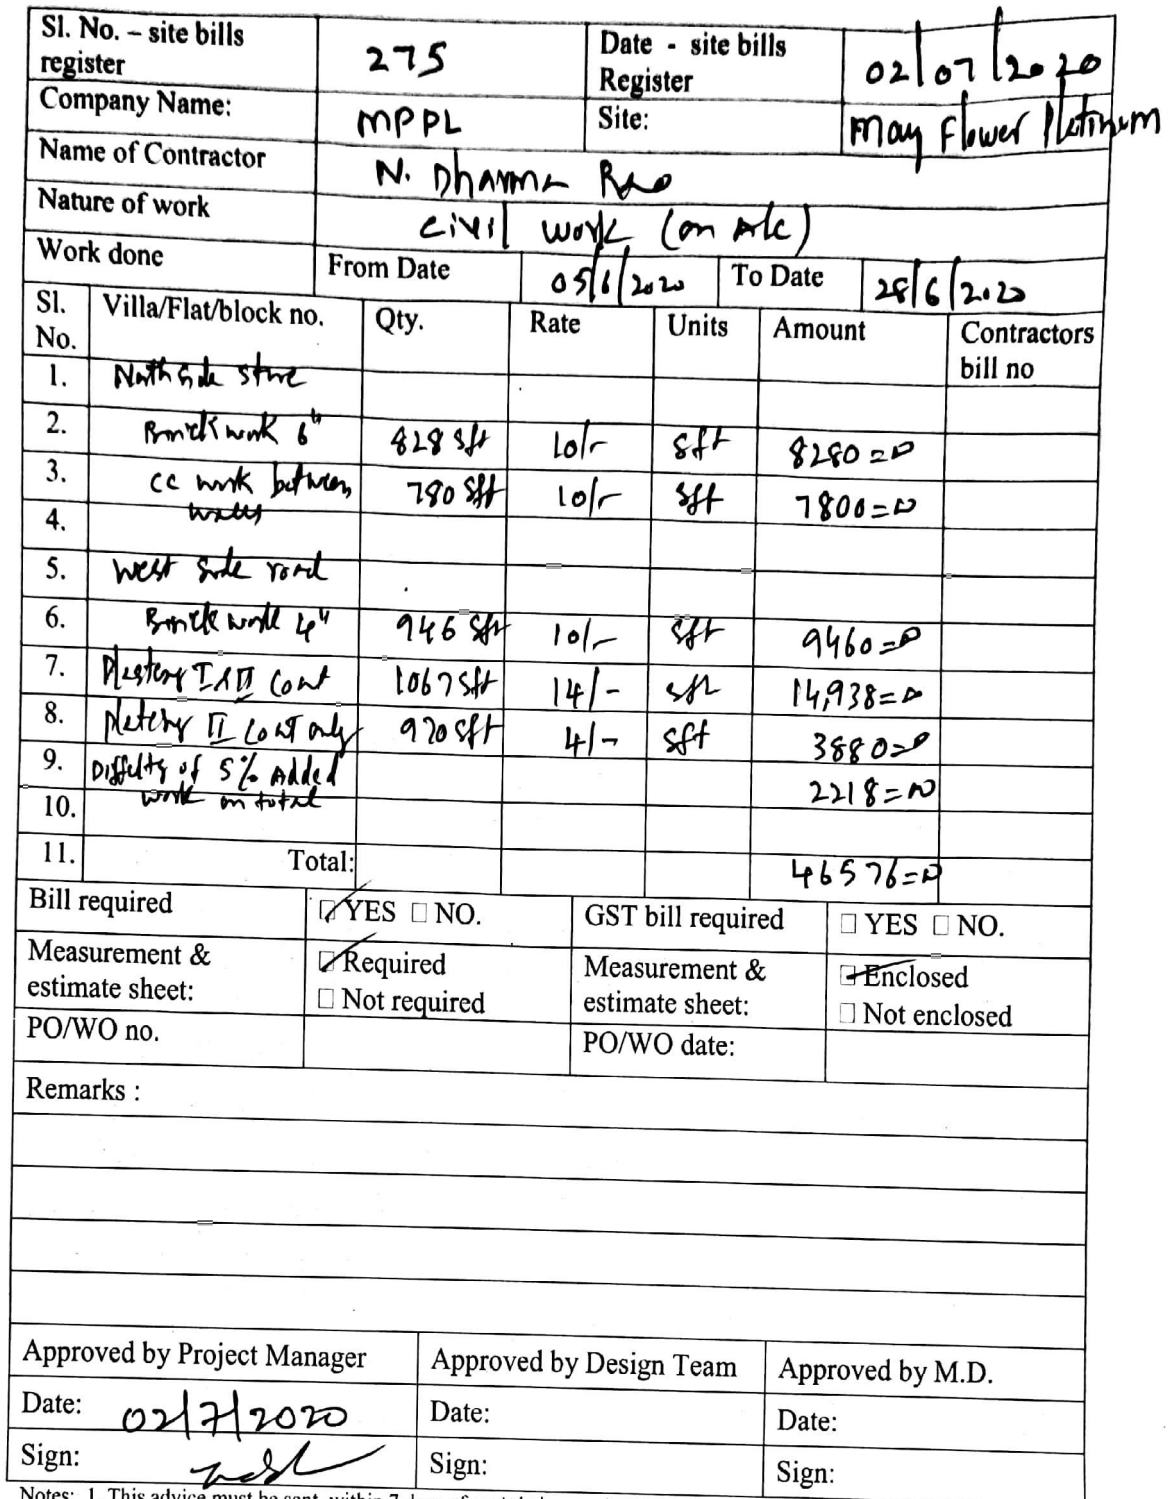 Sl. No. – site bills register 275 Date - site bills Register 02/07/2020
Company Name: MPPL Site: May Flower Platinum
Name of Contractor N. Dharma Rao
Nature of work Civil work (on A/c)
Work done From Date 05/6/2020 To Date 28/6/2020
Sl. No. Villa/Flat/block no. Qty. Rate Units Amount Contractors bill no
1. North side store
2. Brick work 6" 828 sft 10/- sft 8280=0
3. CC work between 780 sft 10/- sft 7800=0
4. walls
5. West side road
6. Brick work 4" 946 sft 10/- sft 9460=0
7. Plastery I & II Coat 1067 sft 14/- sft 14,938=0
8. II Coat only 970 sft 4/- sft 3880=0
9. of 5% Added 2218=0
10. work on total
11. Total: 46576=0
Bill required YES NO. GST bill required YES NO.
Measurement & estimate sheet: Required Not required Measurement & estimate sheet: Enclosed Not enclosed
PO/WO no. PO/WO date:
Remarks :
Approved by Project Manager Approved by Design Team Approved by M.D.
Date: 02/7/2020 Date: Date:
Sign: Sign: Sign:
Notes: 1. This advice must be sent within 7 days